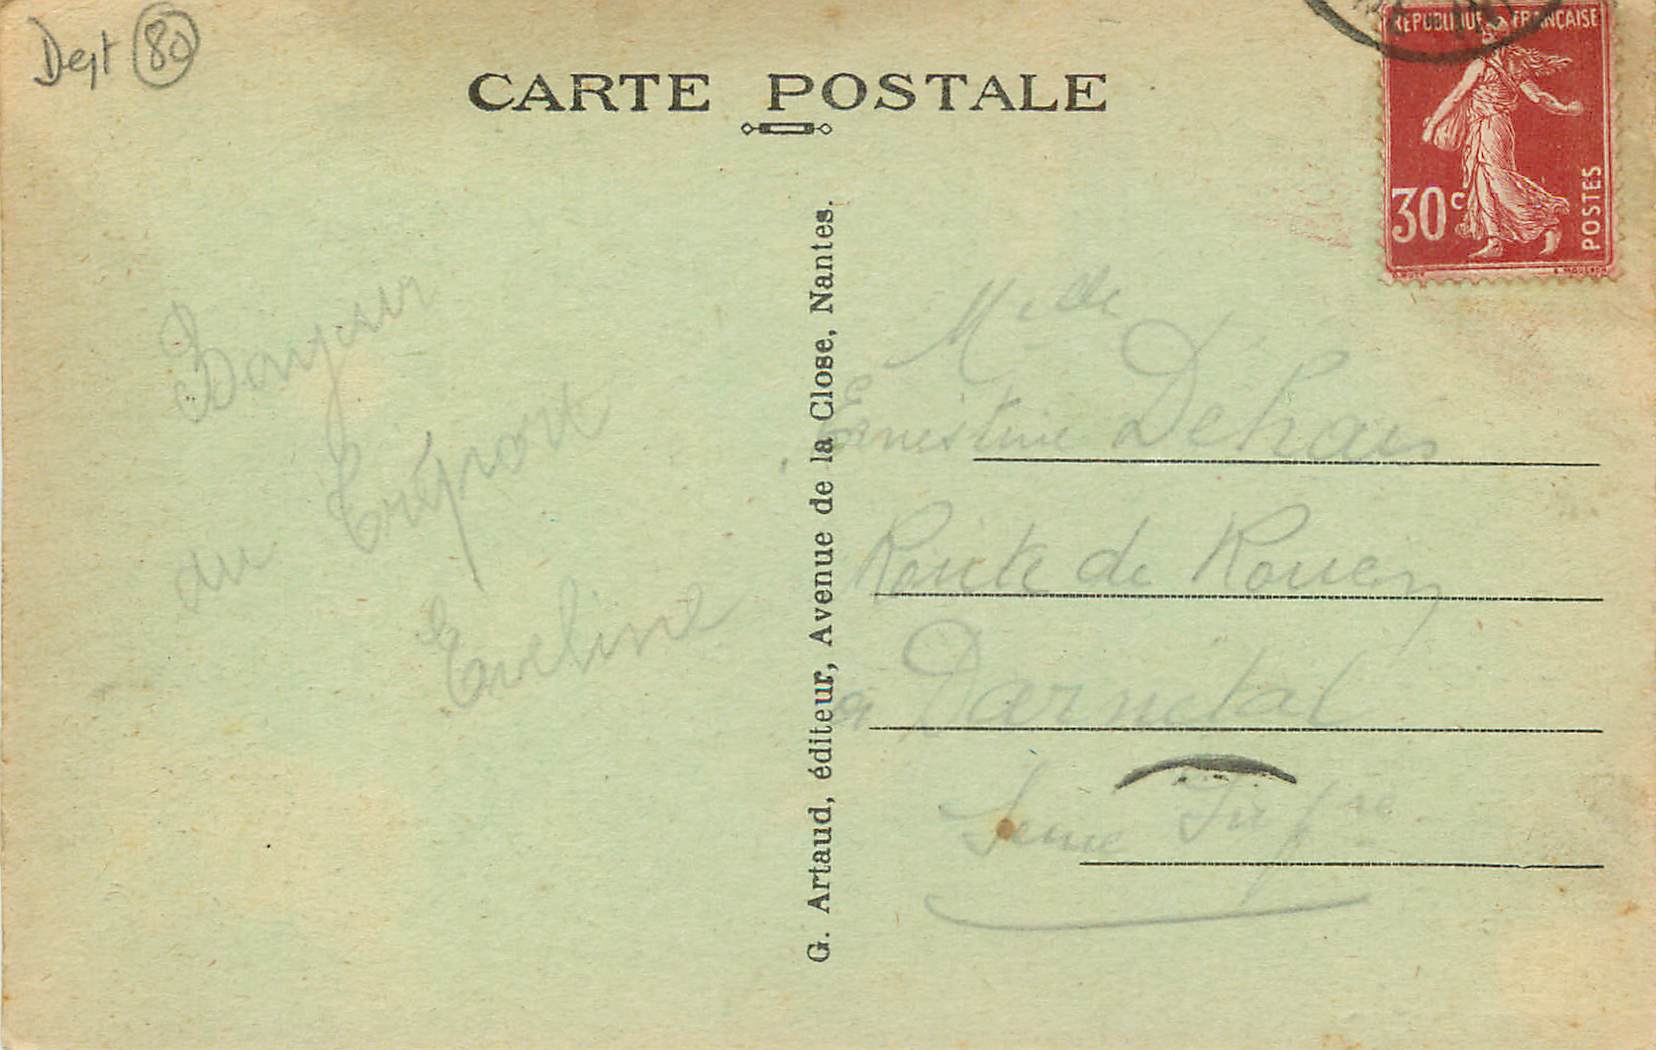 Dept 80
CARTE POSTALE
REPUBLIQUE FRANÇAISE
30c
POSTES
Bonjour
du Tréport
Eveline
G. Artaud, éditeur, Avenue de la Close, Nantes.
Melle
Ernestine Dehais
Route de Rouen
à Darnetal
Seine Infre